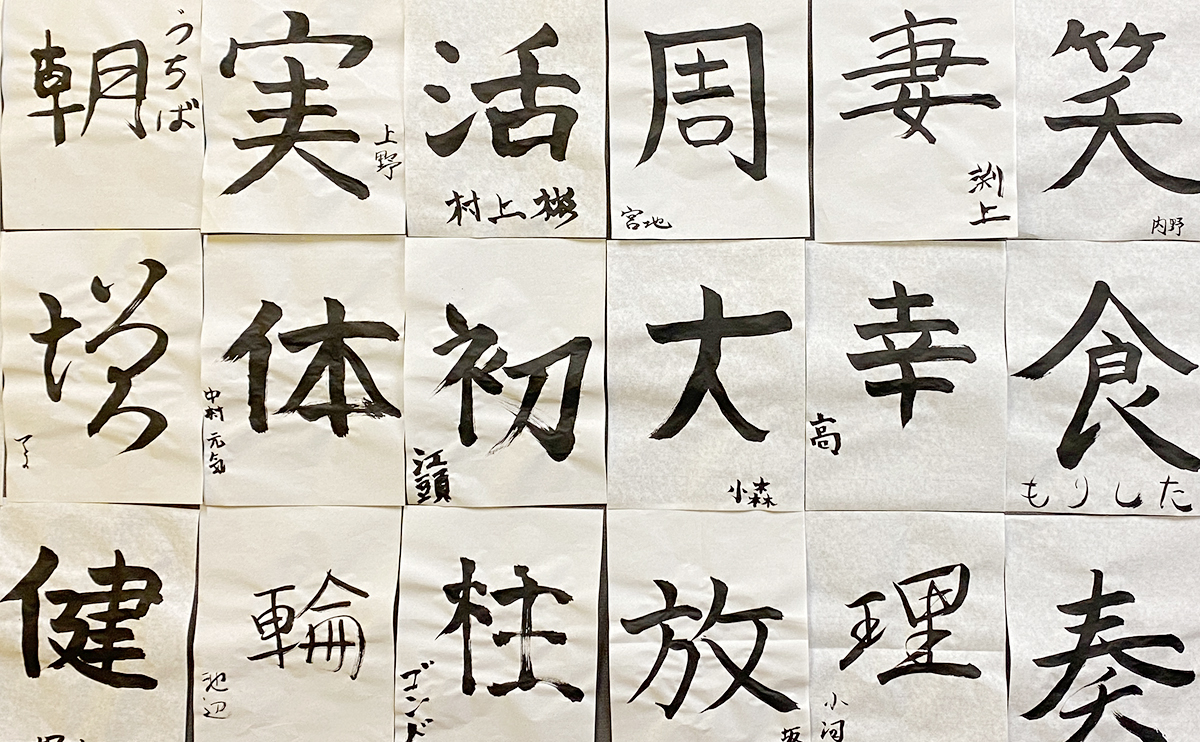 朝
うちば
実
上野
活
村上 彬
周
宮地
妻
渕上
笑
内野
増
体
中村元気
初
江頭
大
小森
幸
高
食
もりした
健
輪
池辺
柱
ゴンド
放
坂
理
奏